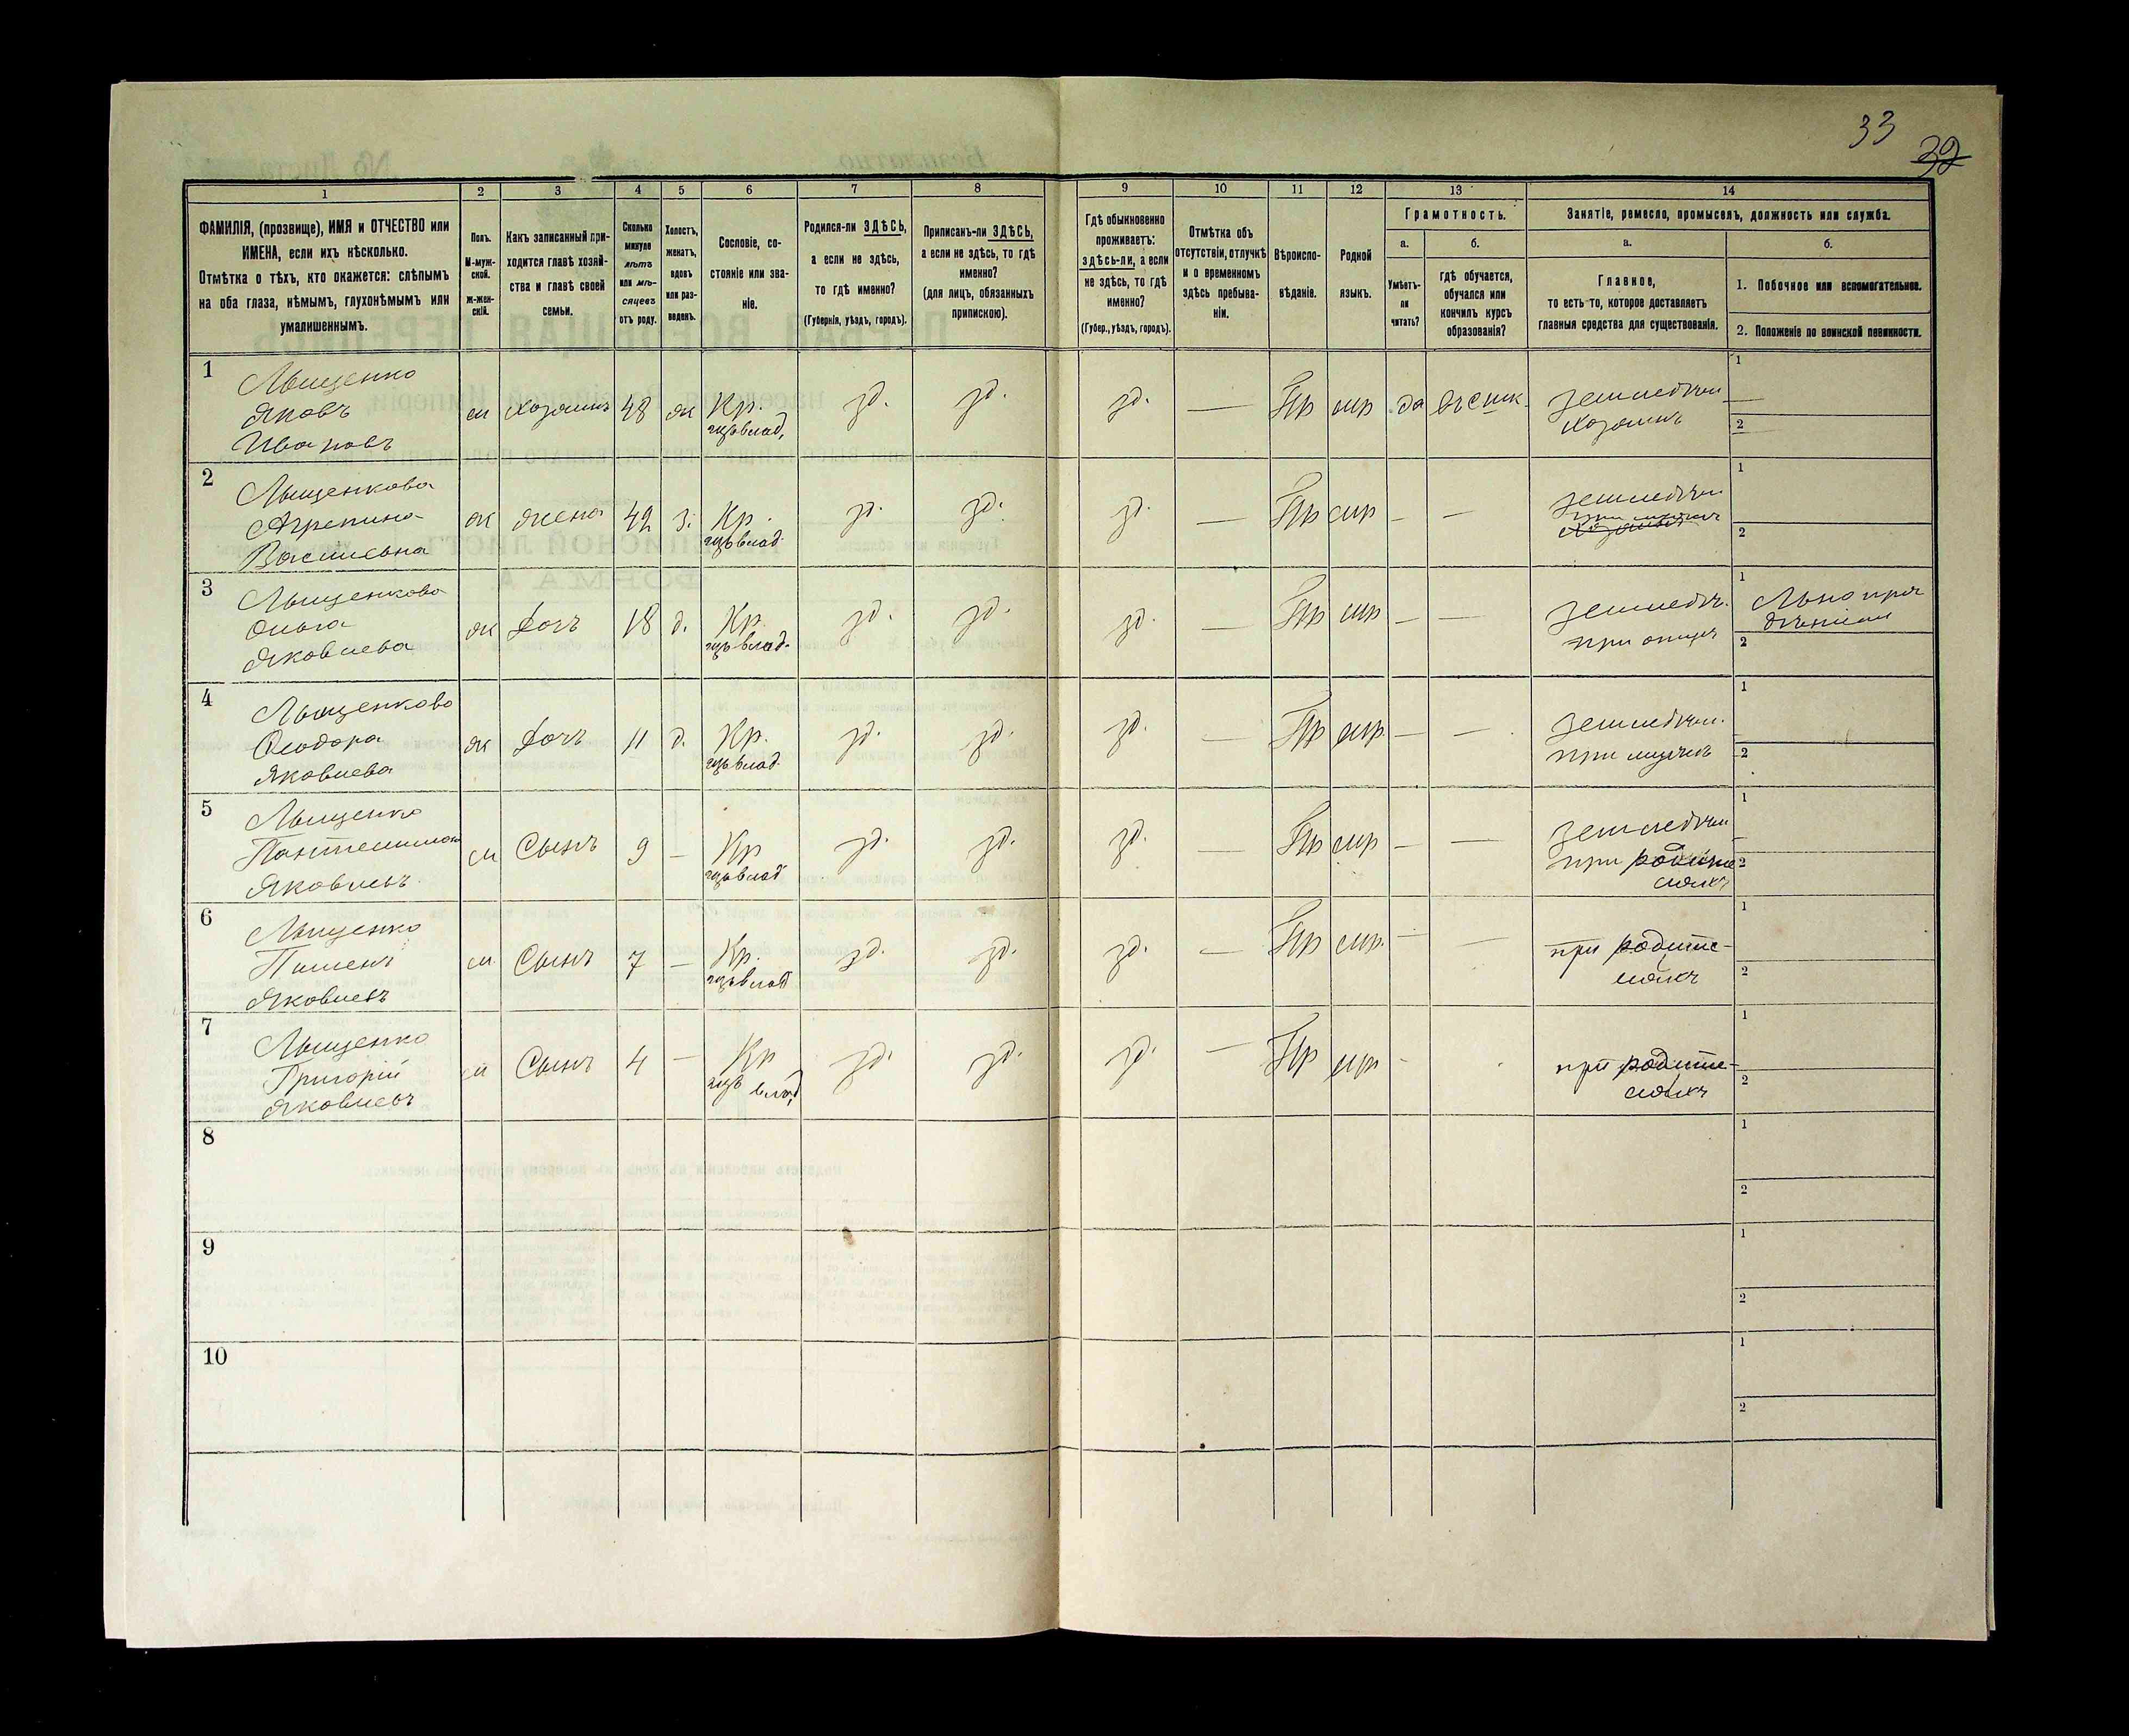 33
32
1
2
3
4
5
6
7
8
9
10
11
12
13
14
ФАМИЛІЯ, (прозвище), ИМЯ и ОТЧЕСТВО или
ИМЕНА, если ихъ нѣсколько.
Отмѣтка о тѣхъ, кто окажется: слѣпымъ
на оба глаза, нѣмымъ, глухонѣмымъ или
умалишеннымъ.
Полъ.
М-муж-
ской.
ж-жен-
скій.
Какъ записанный при-
ходится главѣ хозяй-
ства и главѣ своей
семьи.
Сколько
минуло
лѣтъ
или мѣ-
сяцевъ
отъ роду.
Холостъ,
женатъ,
вдовъ
или раз-
веденъ.
Сословіе, со-
стояніе или зва-
ніе.
Родился-ли ЗДѢСЬ,
а если не здѣсь,
то гдѣ именно?
(Губернія, уѣздъ, городъ).
Приписанъ-ли ЗДѢСЬ,
а если не здѣсь, то гдѣ
именно?
(для лицъ, обязанныхъ
припискою).
Гдѣ обыкновенно
проживаетъ:
здѣсь-ли, а если
не здѣсь, то гдѣ
именно?
(Губер., уѣздъ, городъ).
Отмѣтка объ
отсутствіи, отлучкѣ
и о временномъ
здѣсь пребыва-
ніи.
Вѣроиспо-
вѣданіе.
Родной
языкъ.
Грамотность.
а.
Умѣетъ-
ли
читать?
б.
гдѣ обучается,
обучался или
кончилъ курсъ
образованія?
Занятіе, ремесло, промыселъ, должность или служба.
а.
Главное,
то есть то, которое доставляетъ
главныя средства для существованія.
б.
1. Побочное или вспомогательное.
2. Положеніе по воинской повинности.
1
Лыщенко
Яковъ
Ивановъ
м
хозяинъ
48
ж
Кр.
влад.
зд.
зд.
зд.
—
Пр
мр
да
земледѣл.
хозяинъ
1
2
2
Лыщенкова
Агрепина
Васильевна
ж
жена
42
з.
Кр.
влад.
зд.
зд.
зд.
—
Пр
мр
—
—
земледѣл.
1
2
3
Лыщенкова
Ольга
Яковлева
ж
Дочь
18
д.
Кр
влад.
зд.
зд.
зд.
—
Пр
мр
—
—
земледѣл.
при отцѣ
1
Льнопря
деніем
2
4
Лыщенкова
Ѳеодора
Яковлева
ж
Дочь
11
д.
Кр.
влад.
зд.
зд.
зд.
—
Пр
мр
—
—
земледѣл.
при
1
2
5
Лыщенко
Пантелимон
Яковлевъ
м
Сынъ
9
—
Кр
влад
зд.
зд.
зд.
—
Пр
мр
—
—
земледѣл
при родите
ляхъ
1
2
6
Лыщенко
Пименъ
Яковлевъ
м
Сынъ
7
—
Кр.
влад
зд.
зд.
зд.
—
Пр
мр.
—
—
при родите-
ляхъ
1
2
7
Лыщенко
Григорій
Яковлевъ
м
Сынъ
4
—
Кр
влад
зд.
зд.
зд.
—
Пр
мр
-
при родите-
ляхъ
1
2
8
1
2
9
1
2
10
1
2